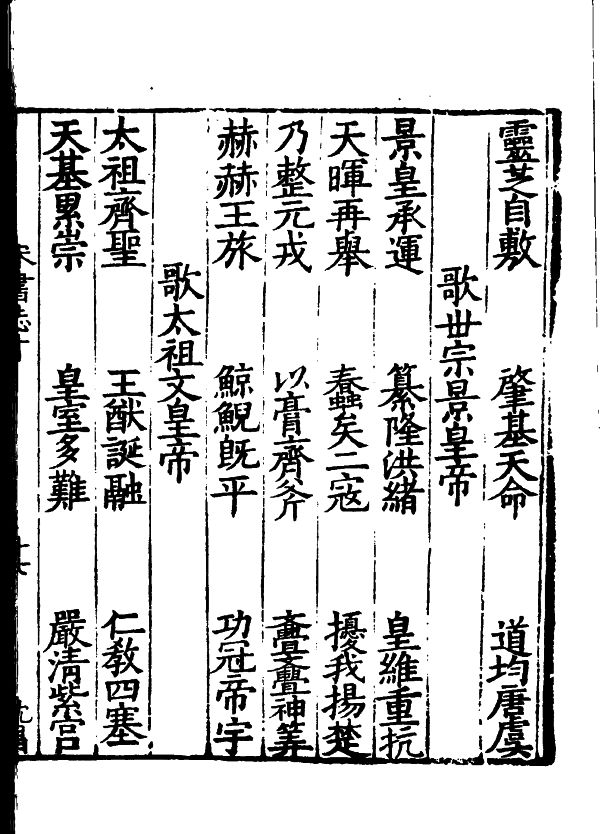 靈芝自敷　肇基天命　道均唐虞
歌世宗景皇帝
景皇承運　纂隆洪緒　皇維重抗
天暉再舉　蠢矣二寇　擾我揚楚
乃整元戎　以膏齊斧　亹亹神筭
赫赫王旅　鯨鯢旣平　功冠帝宇
歌太祖文皇帝
太祖齊聖　王猷誕融　仁敎四塞
天基累崇　皇室多難　嚴清紫宫